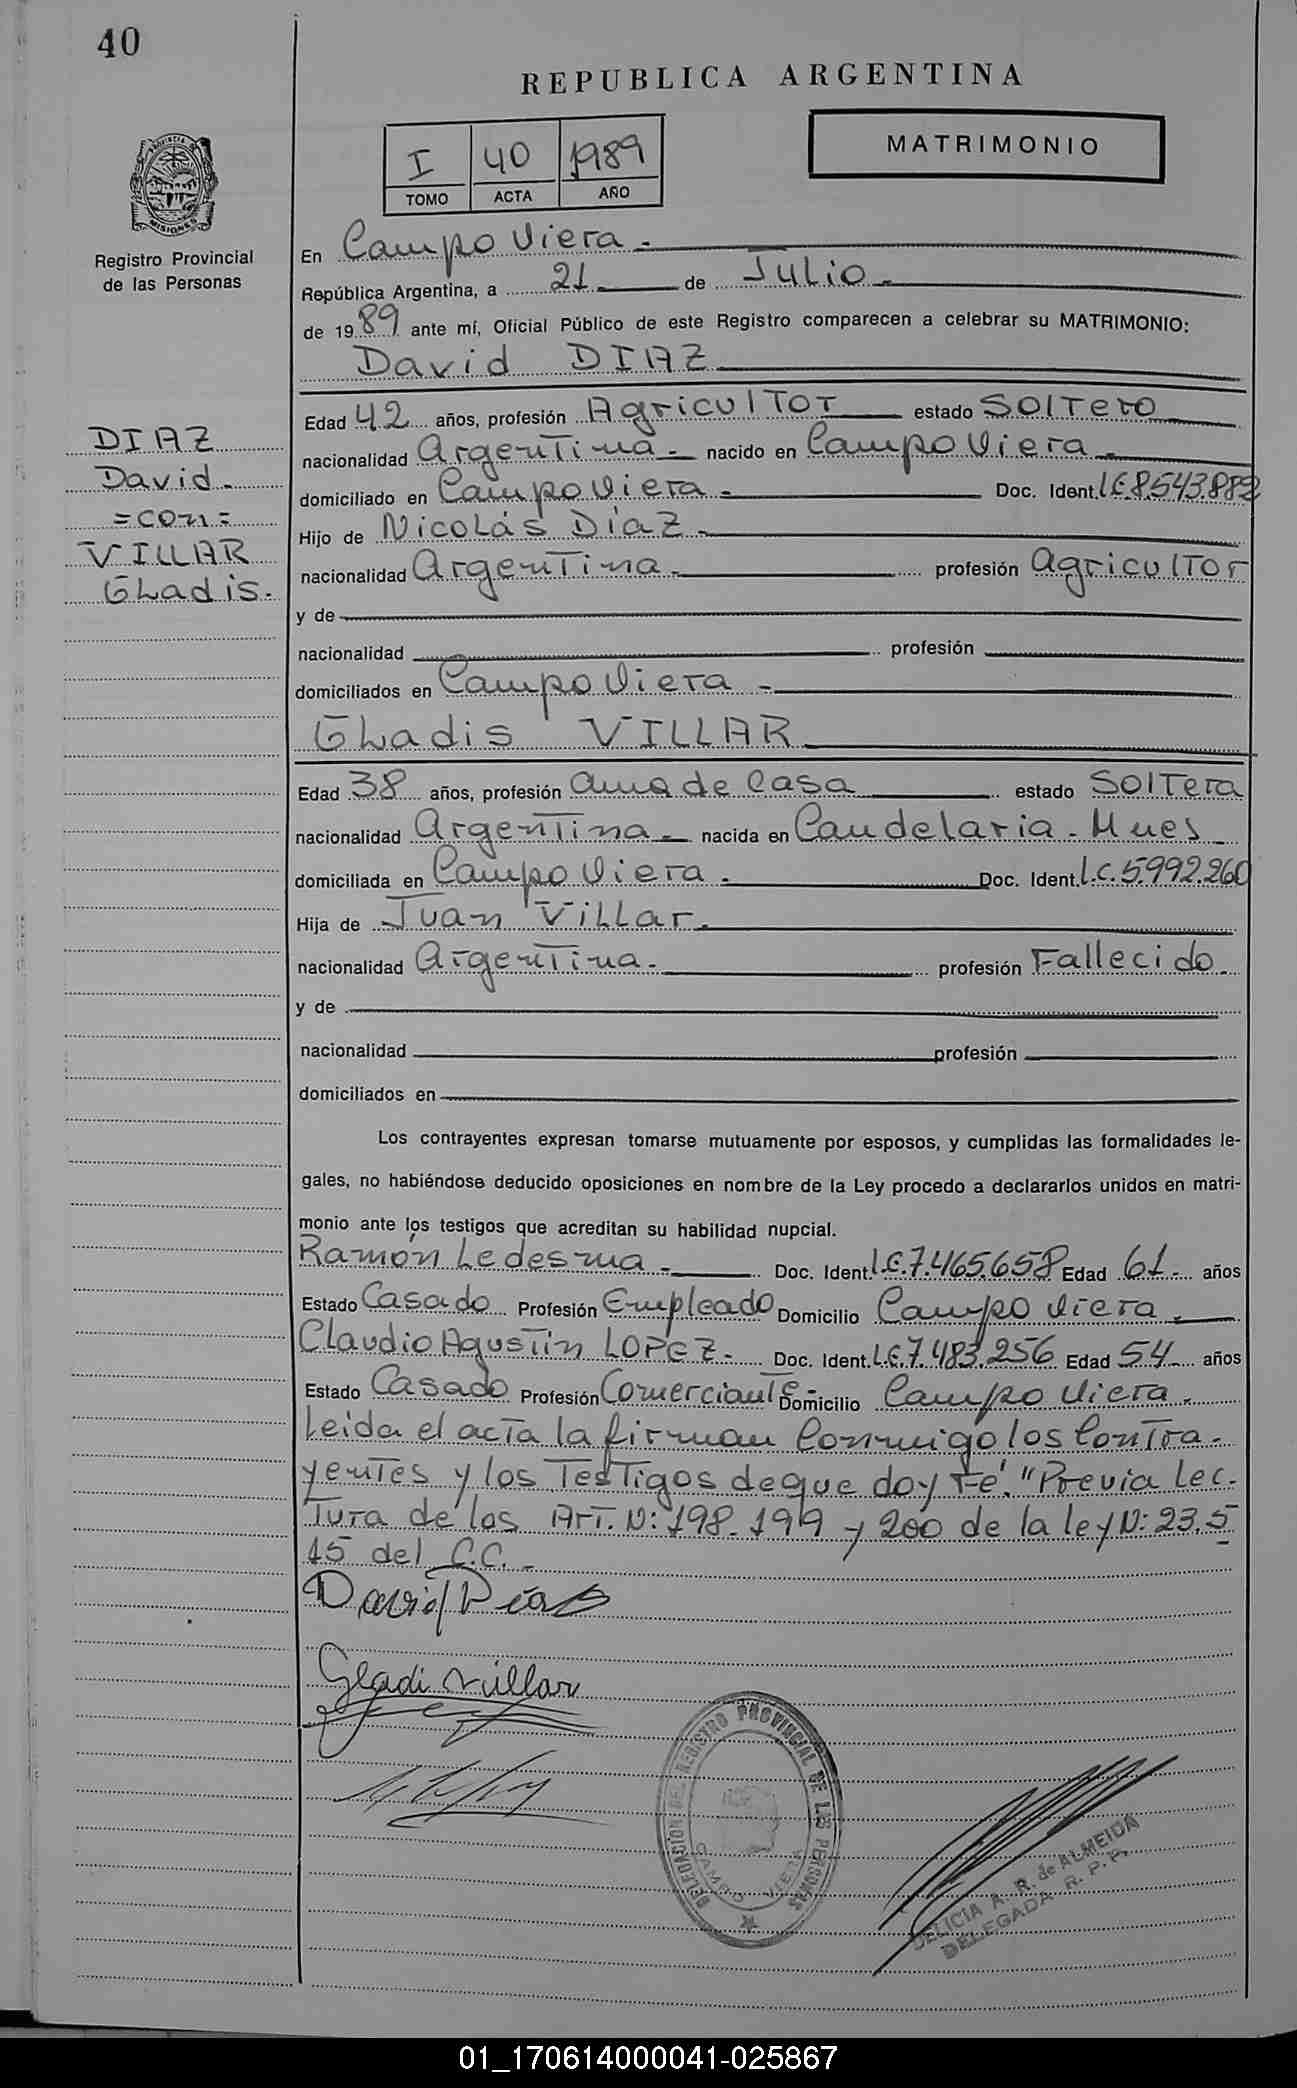 40
REPUBLICA ARGENTINA
I 40 1989
TOMO ACTA AÑO
MATRIMONIO
PROVINCIA DE MISIONES
Registro Provincial
de las Personas
En Campo Viera.-
República Argentina, a 21 de Julio.-
de 1989 ante mí, Oficial Público de este Registro comparecen a celebrar su MATRIMONIO:
David DIAZ
DIAZ
David.-
=con=
VILLAR
Gladis.
Edad 42 años, profesión Agricultor estado Soltero
nacionalidad Argentina.- nacido en Campo Viera.-
domiciliado en Campo Viera.- Doc. Ident. L.E.8.543.882
Hijo de Nicolás Díaz.-
nacionalidad Argentina.- profesión Agricultor
y de
nacionalidad profesión
domiciliados en Campo Viera.-
Gladis VILLAR
Edad 38 años, profesión ama de Casa estado Soltera
nacionalidad Argentina.- nacida en Candelaria.- Mnes
domiciliada en Campo Viera.- Doc. Ident. L.C.5.992.260
Hija de Juan Villar.-
nacionalidad Argentina.- profesión Fallecido.
y de
nacionalidad profesión
domiciliados en
Los contrayentes expresan tomarse mutuamente por esposos, y cumplidas las formalidades le-
gales, no habiéndose deducido oposiciones en nombre de la Ley procedo a declararlos unidos en matri-
monio ante los testigos que acreditan su habilidad nupcial.
Ramón Ledesma.- Doc. Ident. L.E.7.465.658 Edad 61.- años
Estado Casado Profesión Empleado Domicilio Campo Viera
Claudio Agustin LOPEZ.- Doc. Ident. L.E.7.483.256 Edad 54 años
Estado Casado Profesión Comerciante.- Domicilio Campo Viera.-
Leida el acta la firman Conmigo los Contra-
yentes y los Testigos de que doy Fé. "Previa lec-
tura de los Art. N: 198-199 y 200 de la ley N: 23.5
15 del C.C.-
David Diaz
Gladi Villar
DELEGACION DEL REGISTRO PROVINCIAL DE LAS PERSONAS
CAMPO VIERA
DELICIA A. R. de ALMEIDA
DELEGADA R. P. P.
01_170614000041-025867